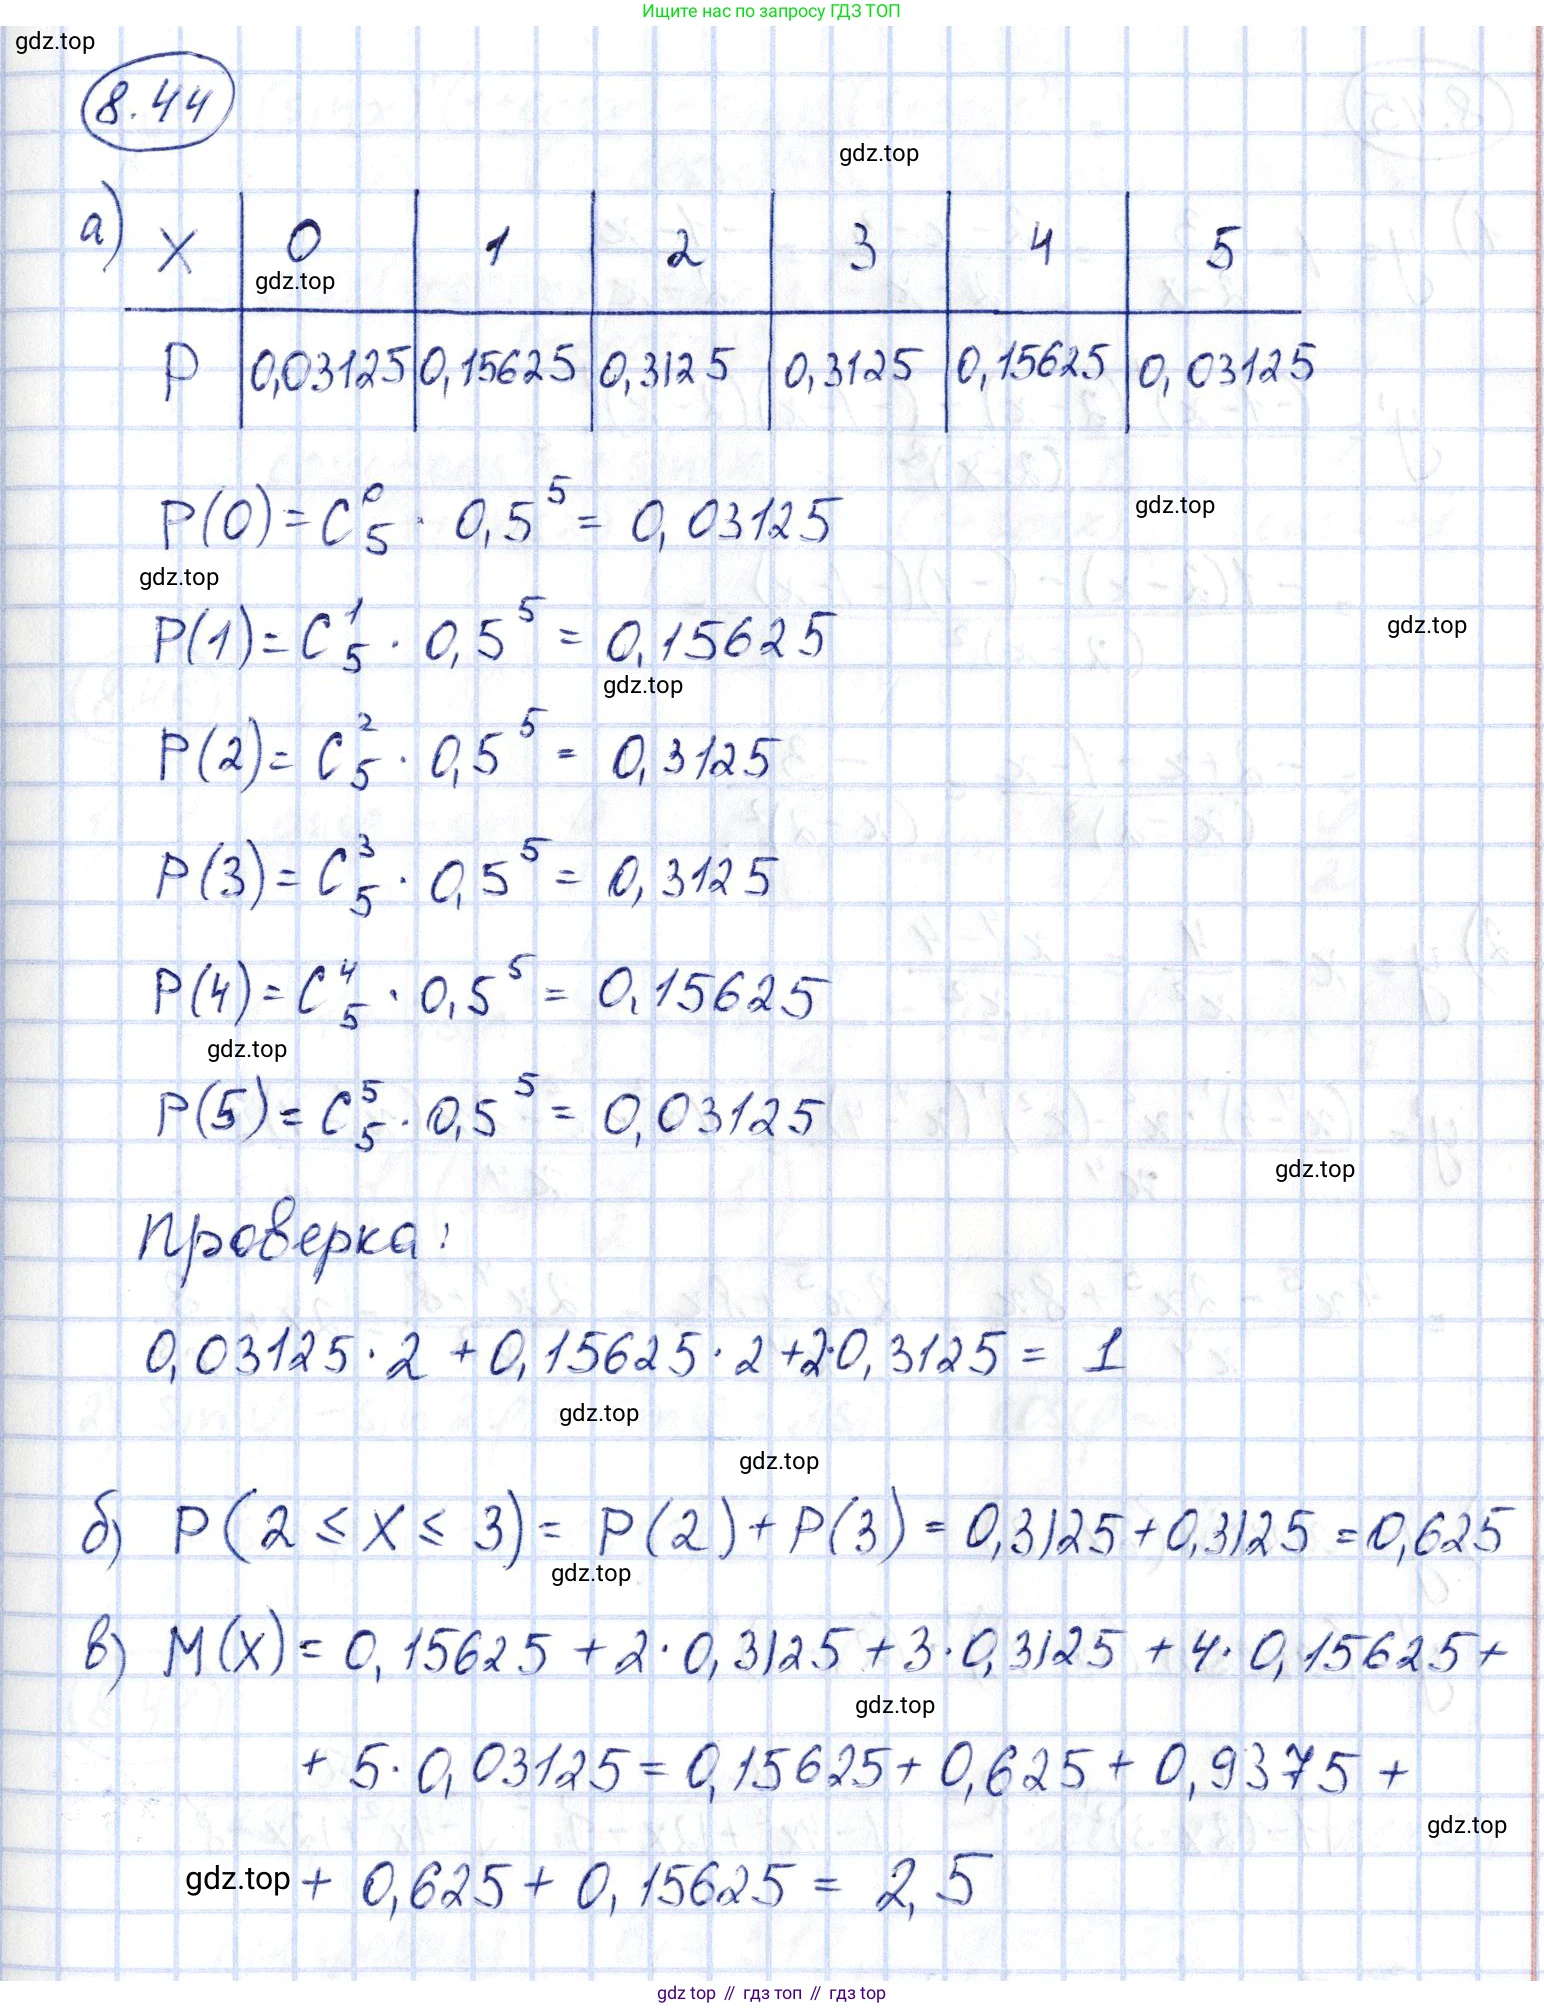 Ищите нас по запросу ГДЗ ТОП
gdz.top
8.44
gdz.top
а) X | 0 | 1 | 2 | 3 | 4 | 5
gdz.top
P | 0,03125 | 0,15625 | 0,3125 | 0,3125 | 0,15625 | 0,03125
P(0) = C₅⁰ · 0,5⁵ = 0,03125
gdz.top
gdz.top
P(1) = C₅¹ · 0,5⁵ = 0,15625
gdz.top
gdz.top
P(2) = C₅² · 0,5⁵ = 0,3125
P(3) = C₅³ · 0,5⁵ = 0,3125
P(4) = C₅⁴ · 0,5⁵ = 0,15625
gdz.top
P(5) = C₅⁵ · 0,5⁵ = 0,03125
gdz.top
Проверка:
0,03125 · 2 + 0,15625 · 2 + 2 · 0,3125 = 1
gdz.top
gdz.top
б) P(2 ≤ X ≤ 3) = P(2) + P(3) = 0,3125 + 0,3125 = 0,625
gdz.top
в) M(X) = 0,15625 + 2 · 0,3125 + 3 · 0,3125 + 4 · 0,15625 +
gdz.top
+ 5 · 0,03125 = 0,15625 + 0,625 + 0,9375 +
gdz.top
gdz.top
+ 0,625 + 0,15625 = 2,5
gdz.top // гдз топ // гдз top